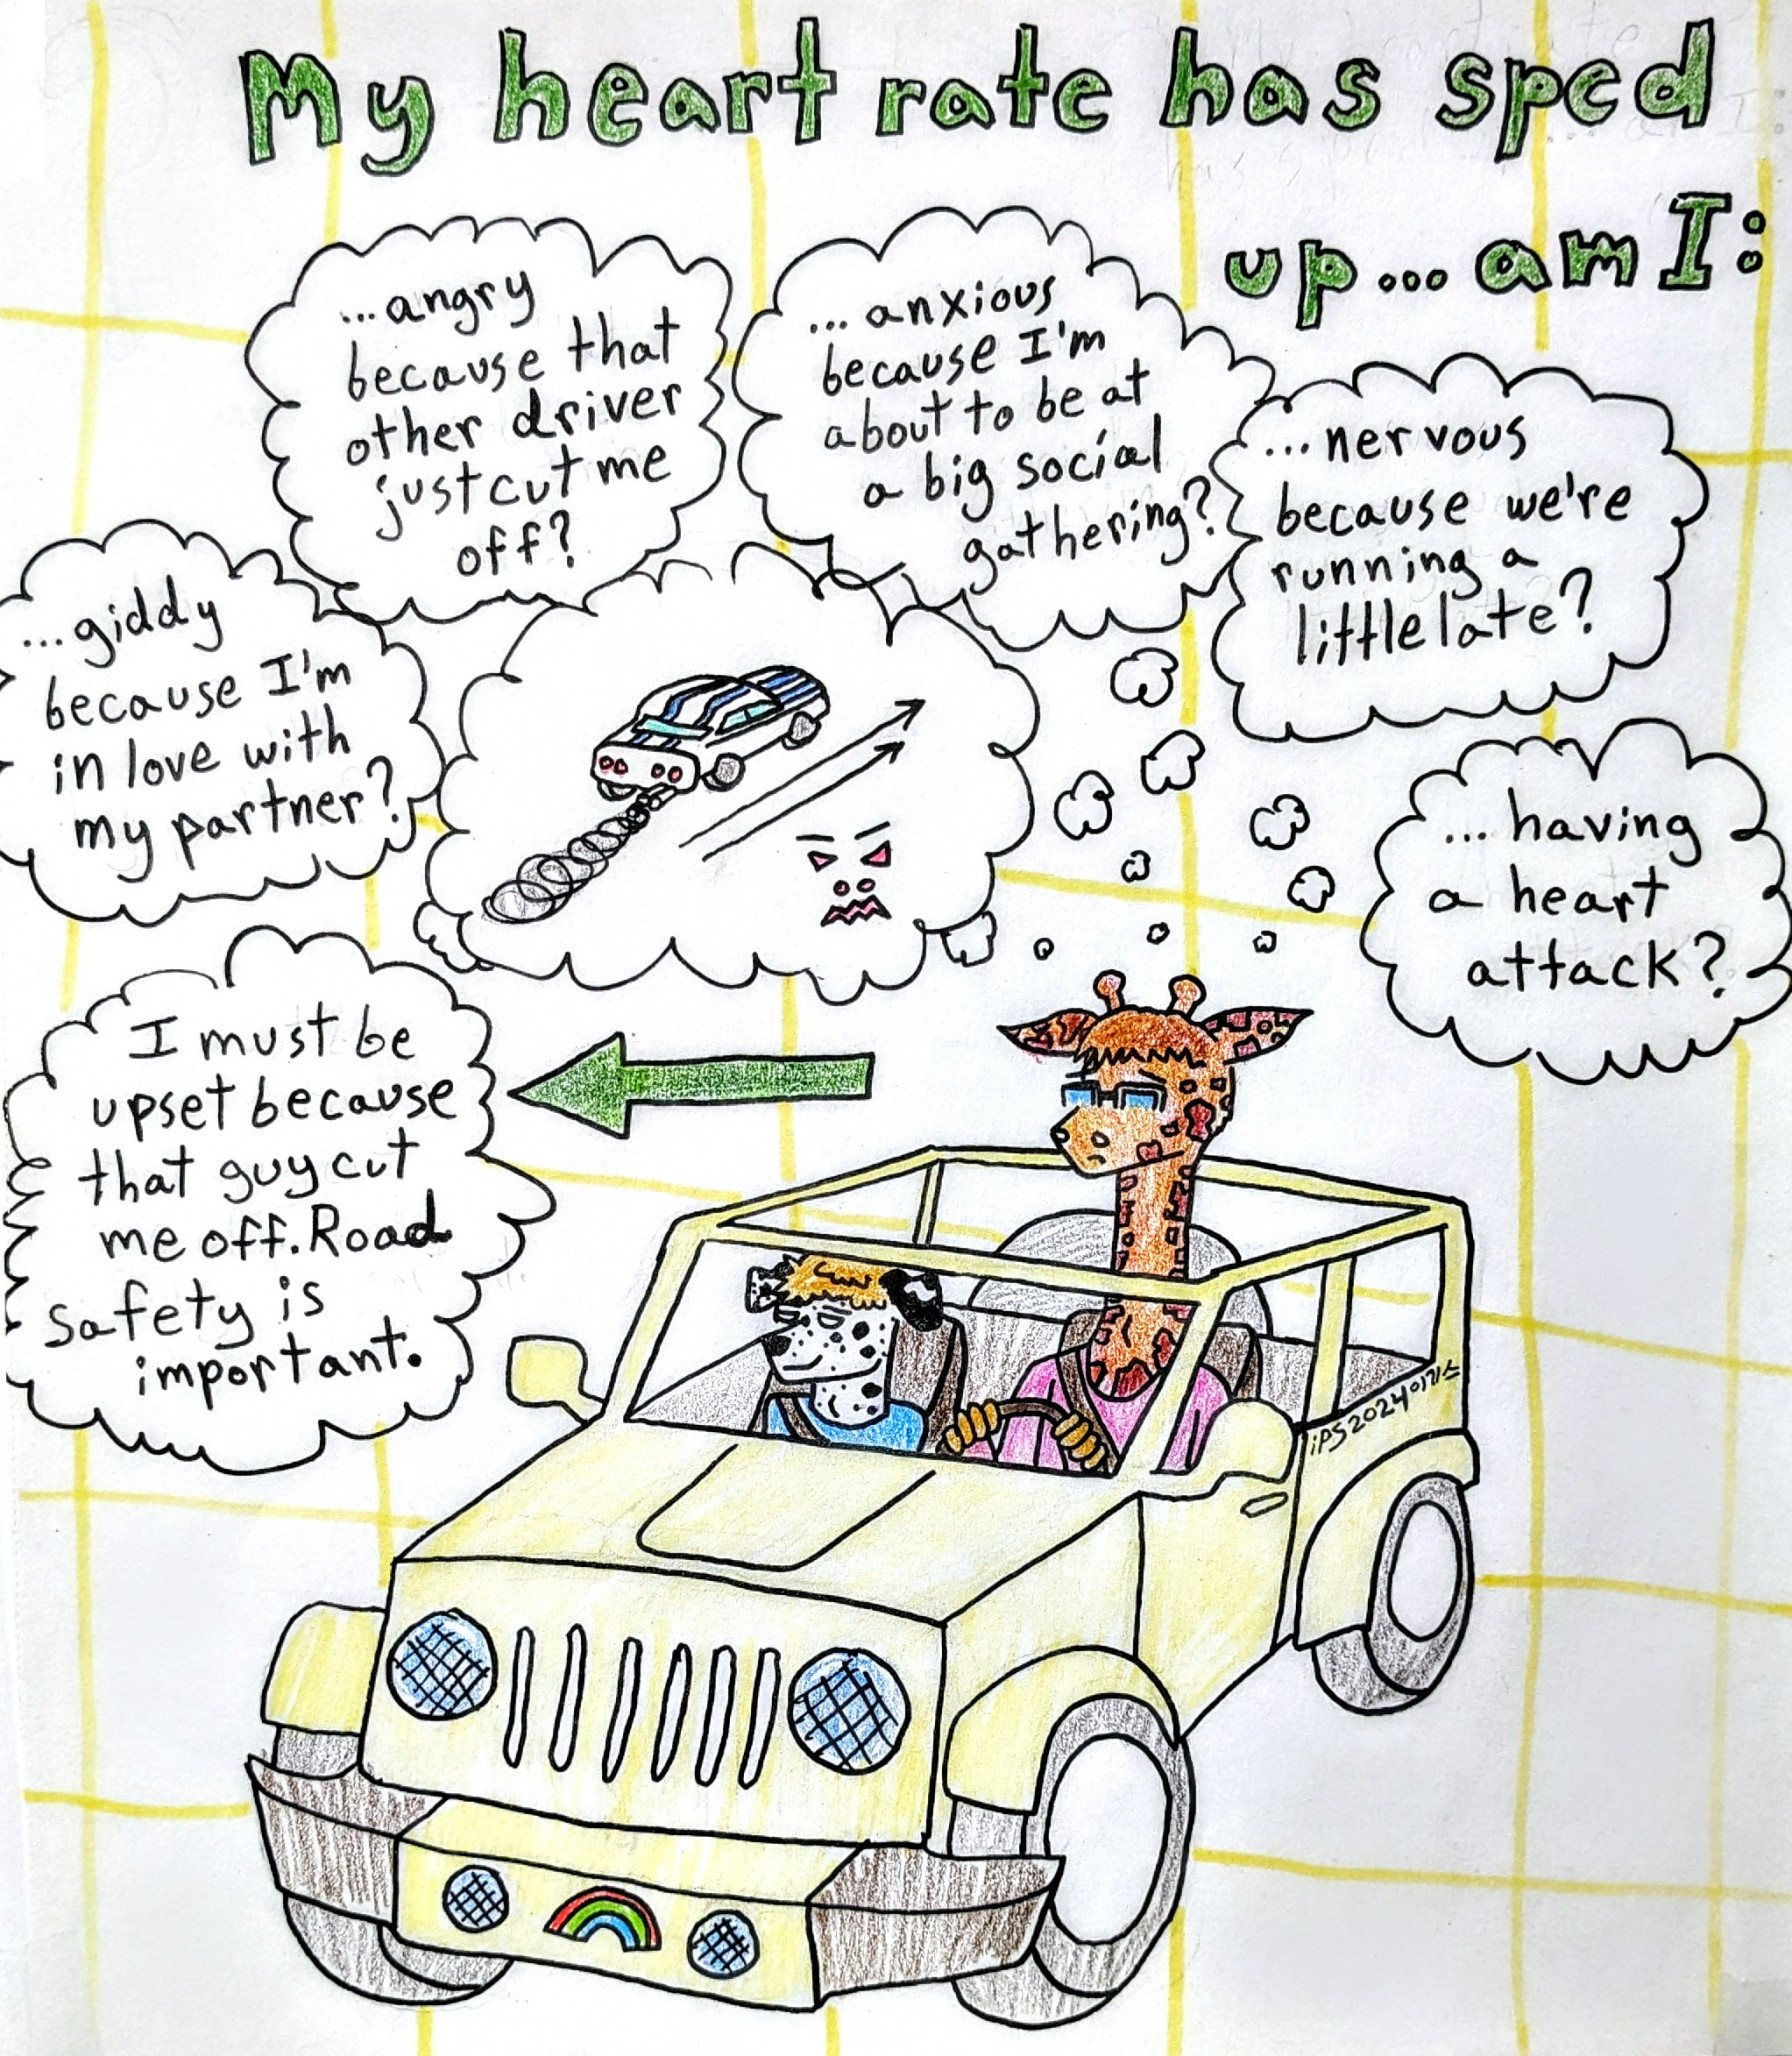 My heart rate has sped
up... am I:
...giddy
because I'm
in love with
my partner?
...angry
because that
other driver
just cut me
off?
...anxious
because I'm
about to be at
a big social
gathering?
...nervous
because we're
running a
little late?
...having
a heart
attack?
I must be
upset because
that guy cut
me off. Road
safety is
important.
iPS2024이기스